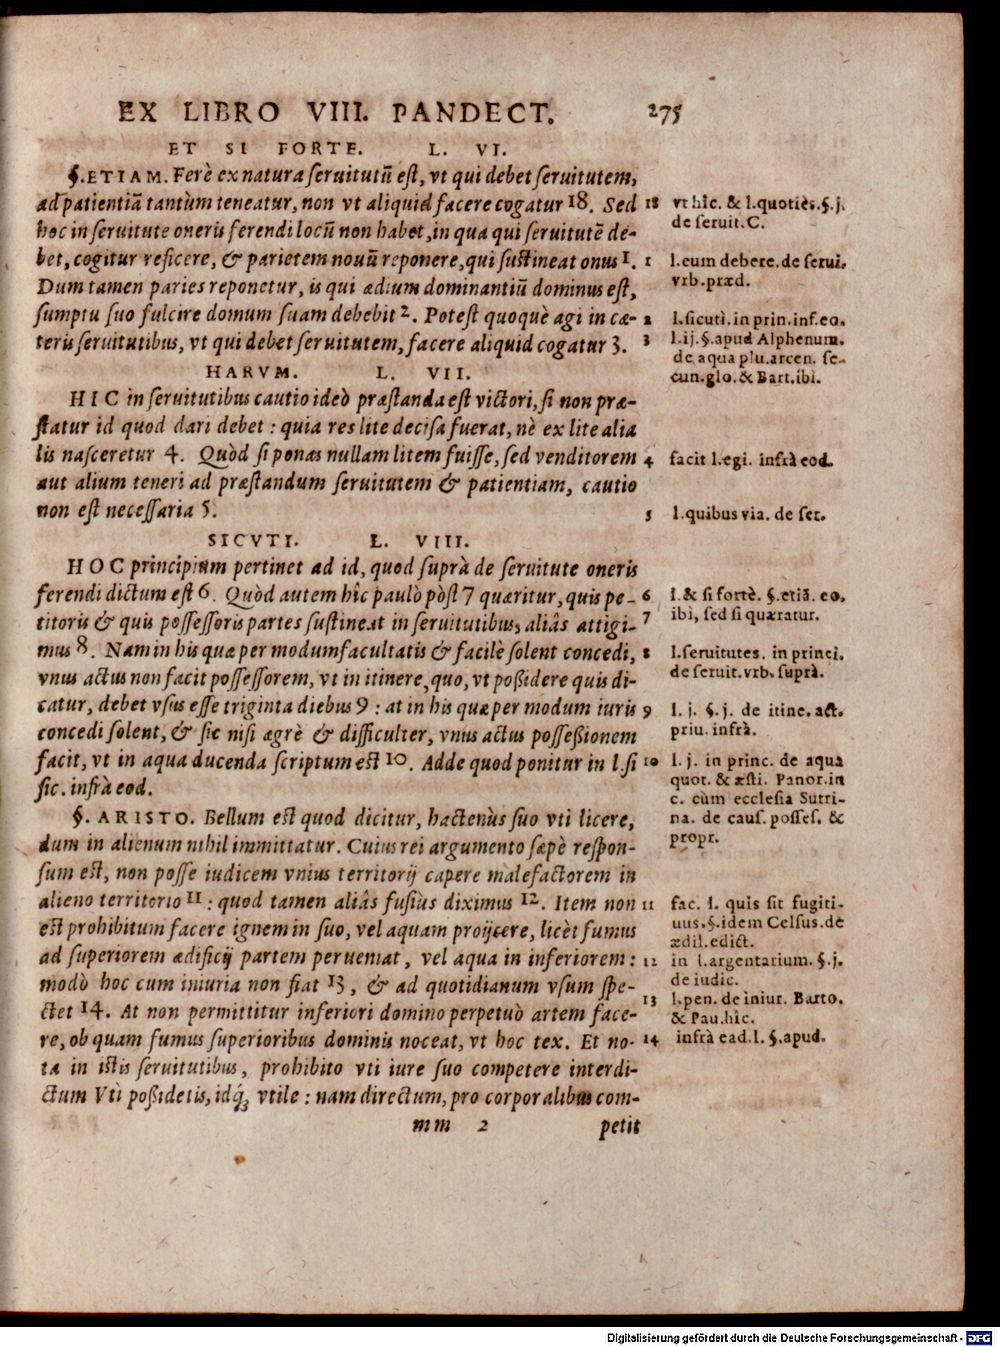 EX LIBRO VIII. PANDECT. 275
ET SI FORTE. L. VI.
§. ETIAM. Ferè ex natura seruitutũ est, vt qui debet seruitutem,
ad patientiã tantùm teneatur, non vt aliquid facere cogatur 18. Sed
hoc in seruitute oneris ferendi locũ non habet, in qua qui seruitutẽ de-
bet, cogitur reficere, & parietem nouũ reponere, qui sustineat onus 1.
Dum tamen paries reponetur, is qui ædium dominantiũ dominus est,
sumptu suo fulcire domum suam debebit 2. Potest quoquè agi in cæ-
teris seruitutibus, vt qui debet seruitutem, facere aliquid cogatur 3.
HARVM. L. VII.
HIC in seruitutibus cautio ideò præstanda est victori, si non præ-
statur id quod dari debet : quia res lite decisa fuerat, nè ex lite alia
lis nasceretur 4. Quòd si ponas nullam litem fuisse, sed venditorem
aut alium teneri ad præstandum seruitutem & patientiam, cautio
non est necessaria 5.
SICVTI. L. VIII.
HOC principium pertinet ad id, quod suprà de seruitute oneris
ferendi dictum est 6. Quòd autem hîc paulò pòst 7 quæritur, quis pe-
titoris & quis possessoris partes sustineat in seruitutibus, aliâs attigi-
mus 8. Nam in his quæ per modum facultatis & facilè solent concedi,
vnus actus non facit possessorem, vt in itinere, quo, vt possidere quis di-
catur, debet vsus esse triginta diebus 9 : at in his quæ per modum iuris
concedi solent, & sic nisi ægrè & difficulter, vnus actus possessionem
facit, vt in aqua ducenda scriptum est 10. Adde quod ponitur in l. si
sic. infrà eod.
§. ARISTO. Bellum est quod dicitur, hactenùs suo vti licere,
dum in alienum nihil immittatur. Cuius rei argumento sæpè respon-
sum est, non posse iudicem vnius territorij capere malefactorem in
alieno territorio 11 : quod tamen aliâs fusius diximus 12. Item non
est prohibitum facere ignem in suo, vel aquam proijcere, licèt fumus
ad superiorem ædificij partem perueniat, vel aqua in inferiorem :
modò hoc cum iniuria non fiat 13, & ad quotidianum vsum spe-
ctet 14. At non permittitur inferiori domino perpetuò artem face-
re, ob quam fumus superioribus dominis noceat, vt hoc tex. Et no-
ta in istis seruitutibus, prohibito vti iure suo competere interdi-
ctum Vti possidetis, idq́ʒ vtile : nam directum, pro corporalibus com-
mm 2 petit
18 vt hîc. & l. quotiès. §. j.
de seruit. C.
1 l. eum debere. de serui.
vrb. præd.
2 l. sicuti. in prin. inf. eo.
3 l. ij. §. apud Alphenum.
de aqua plu. arcen. se-
cun. glo. & Bart. ibi.
4 facit l. egi. infrà eod.
5 l. quibus via. de ser.
6 l. & si fortè. §. etiã. eo.
7 ibi, sed si quæratur.
8 l. seruitutes. in princi.
de seruit. vrb. suprà.
9 l. j. §. j. de itine. act.
priu. infrà.
10 l. j. in princ. de aqua
quot. & æsti. Panor. in
c. cùm ecclesia Sutri-
na. de caus. posses. &
propr.
11 fac. l. quis sit fugiti-
uus. §. idem Celsus. de
ædil. edict.
12 in l. argentarium. §. j.
de iudic.
13 l. pen. de iniur. Barto.
& Pau. hîc.
14 infrà ead. l. §. apud.
Digitalisierung gefördert durch die Deutsche Forschungsgemeinschaft - DFG